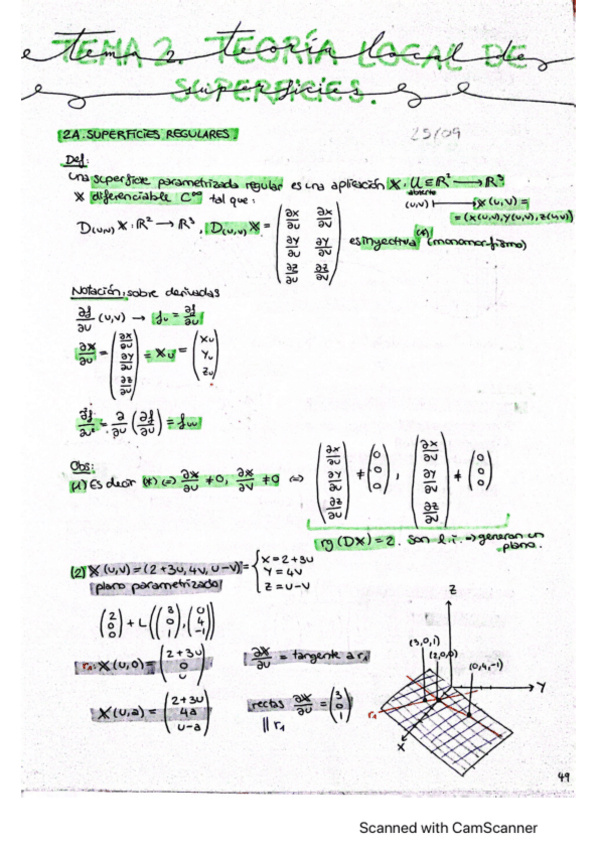 TEMA 2. TEORÍA LOCAL DE SUPERFICIES.
2A. SUPERFICIES REGULARES.
25/09
Def:
Una superficie parametrizada regular es una aplicación X: U ∈ ℝ² → ℝ³
abierto
X diferenciable C^∞ tal que:
(u,v) ↦ X(u,v) =
= (x(u,v), y(u,v), z(u,v))
D(u,v) X: ℝ² → ℝ³, D(u,v) X = (∂x/∂u ∂x/∂v ; ∂y/∂u ∂y/∂v ; ∂z/∂u ∂z/∂v) es inyectiva (*) (monomorfismo)
Notación, sobre derivadas
∂f/∂u (u,v) → f_u = ∂f/∂u
∂X/∂u = (∂x/∂u ; ∂y/∂u ; ∂z/∂u) = X_u = (x_u ; y_u ; z_u)
∂²f/∂u² = ∂/∂u (∂f/∂u) = f_uu
Obs:
(1) Es decir (*) ⇔ ∂X/∂u ≠ 0, ∂X/∂v ≠ 0 ⇔ (∂x/∂u ; ∂y/∂u ; ∂z/∂u) ≠ (0 ; 0 ; 0), (∂x/∂v ; ∂y/∂v ; ∂z/∂v) ≠ (0 ; 0 ; 0)
rg (DX) = 2. son l.i. ⇒ generan un plano.
(2) X(u,v) = (2+3u, 4v, u-v) = { x = 2+3u ; y = 4v ; z = u-v
plano parametrizado
(2 ; 0 ; 0) + L((3 ; 0 ; 1), (0 ; 4 ; -1))
r₁: X(u,0) = (2+3u ; 0 ; u) ∂X/∂u = tangente a r₁
X(u,a) = (2+3u ; 4a ; u-a) rectas ∂X/∂u = (3 ; 0 ; 1)
|| r₁
Z
(3,0,1)
(2,0,0)
(0,4,-1)
Y
r₁
X
49
Scanned with CamScanner